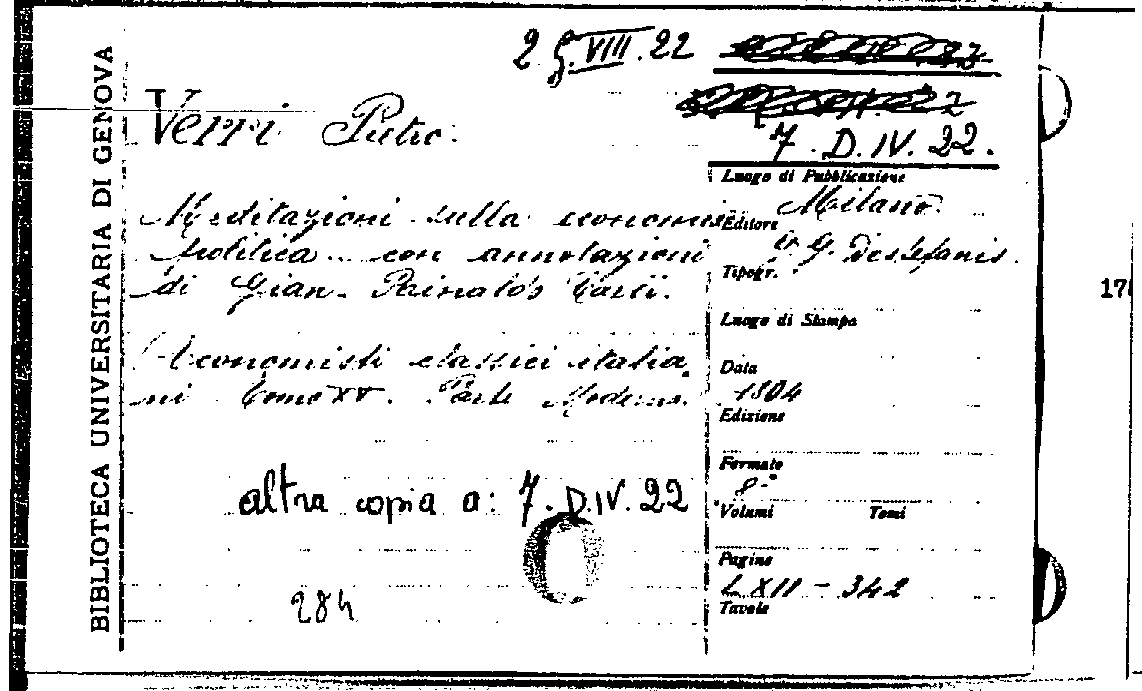 BIBLIOTECA UNIVERSITARIA DI GENOVA
2 G.VIII.22
Verri Pietro.
7. D.IV. 22.
Meditazioni sulla economia
politica con annotazioni
di Gian Rinaldo Carli.
Economisti classici italia
ni Tomo XV. Parte Moderna.
altra copia a: 7. D.IV. 22
284
Luogo di Pubblicazione
Milano
Editore
G. G. Destefanis.
Tipogr.
Luogo di Stampa
Data
1804
Edizione
Formato
8°
Volumi Tomi
Pagine
LXII - 342
Tavole